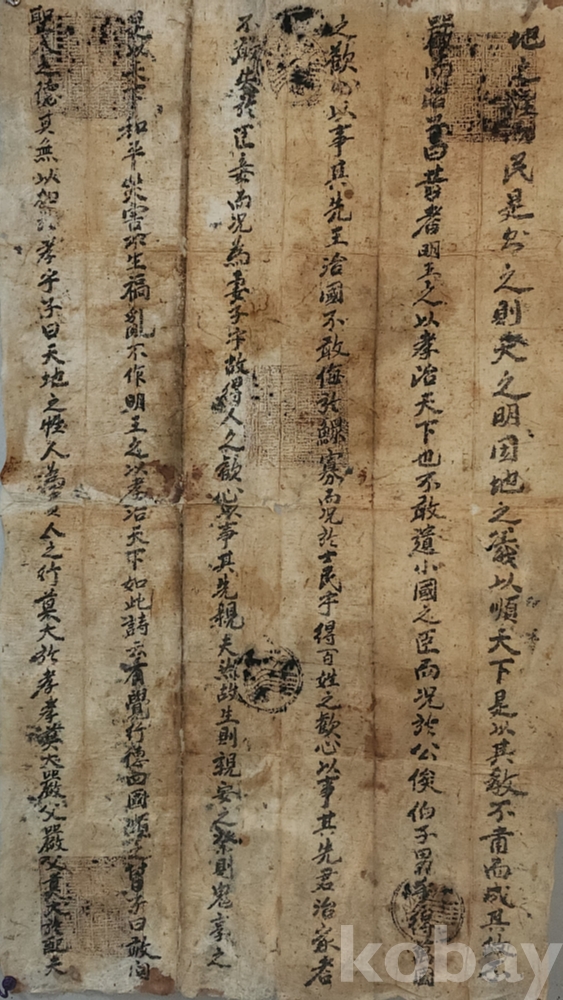 地之經民是則之則天之明因地之義以順天下是以其敎不肅而成其
嚴而治子曰昔者明王之以孝治天下也不敢遺小國之臣而况於公侯伯子男乎得萬國
之歡心以事其先王治國不敢侮於鰥寡而况於士民乎得百姓之歡心以事其先君治家者
不敢失於臣妾而况為妻子乎故得人之歡心以事其先親夫然故生則親安之祭則鬼享之
是以天下和平災害不生禍亂不作明王之以孝治天下如此詩云有覺行德四國順之曾子曰敢问
聖人之德其無以加於孝乎子曰天地之性人為貴人之行莫大於孝孝莫大嚴父嚴父莫大於配天
kobay